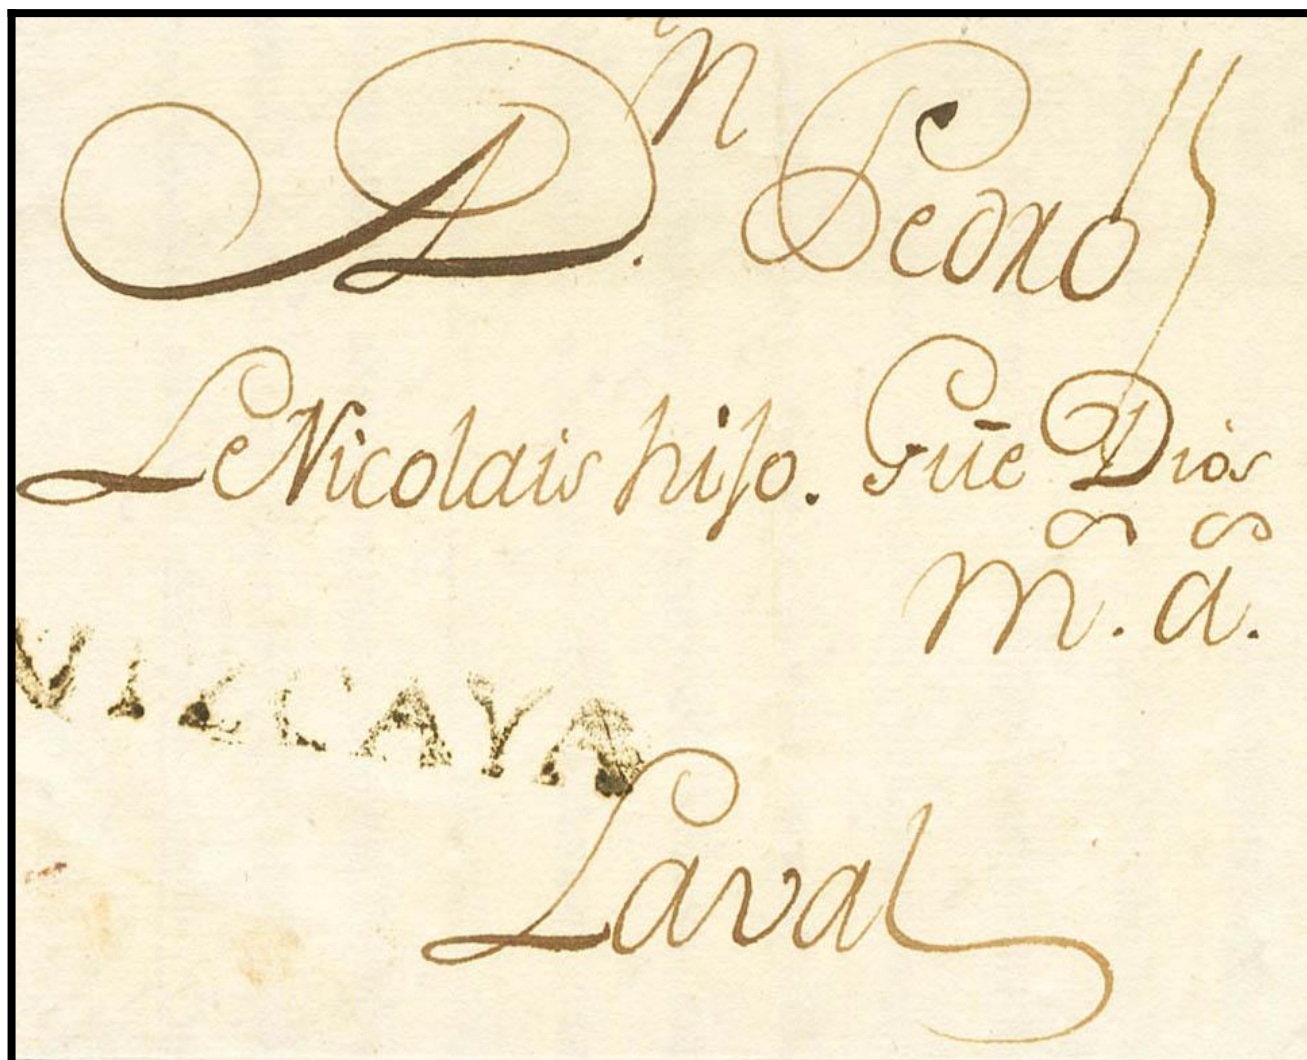 A Dn. Pedro
Le Nicolais hijo. Gūe Dios
m. a.
VIZCAYA
Laval